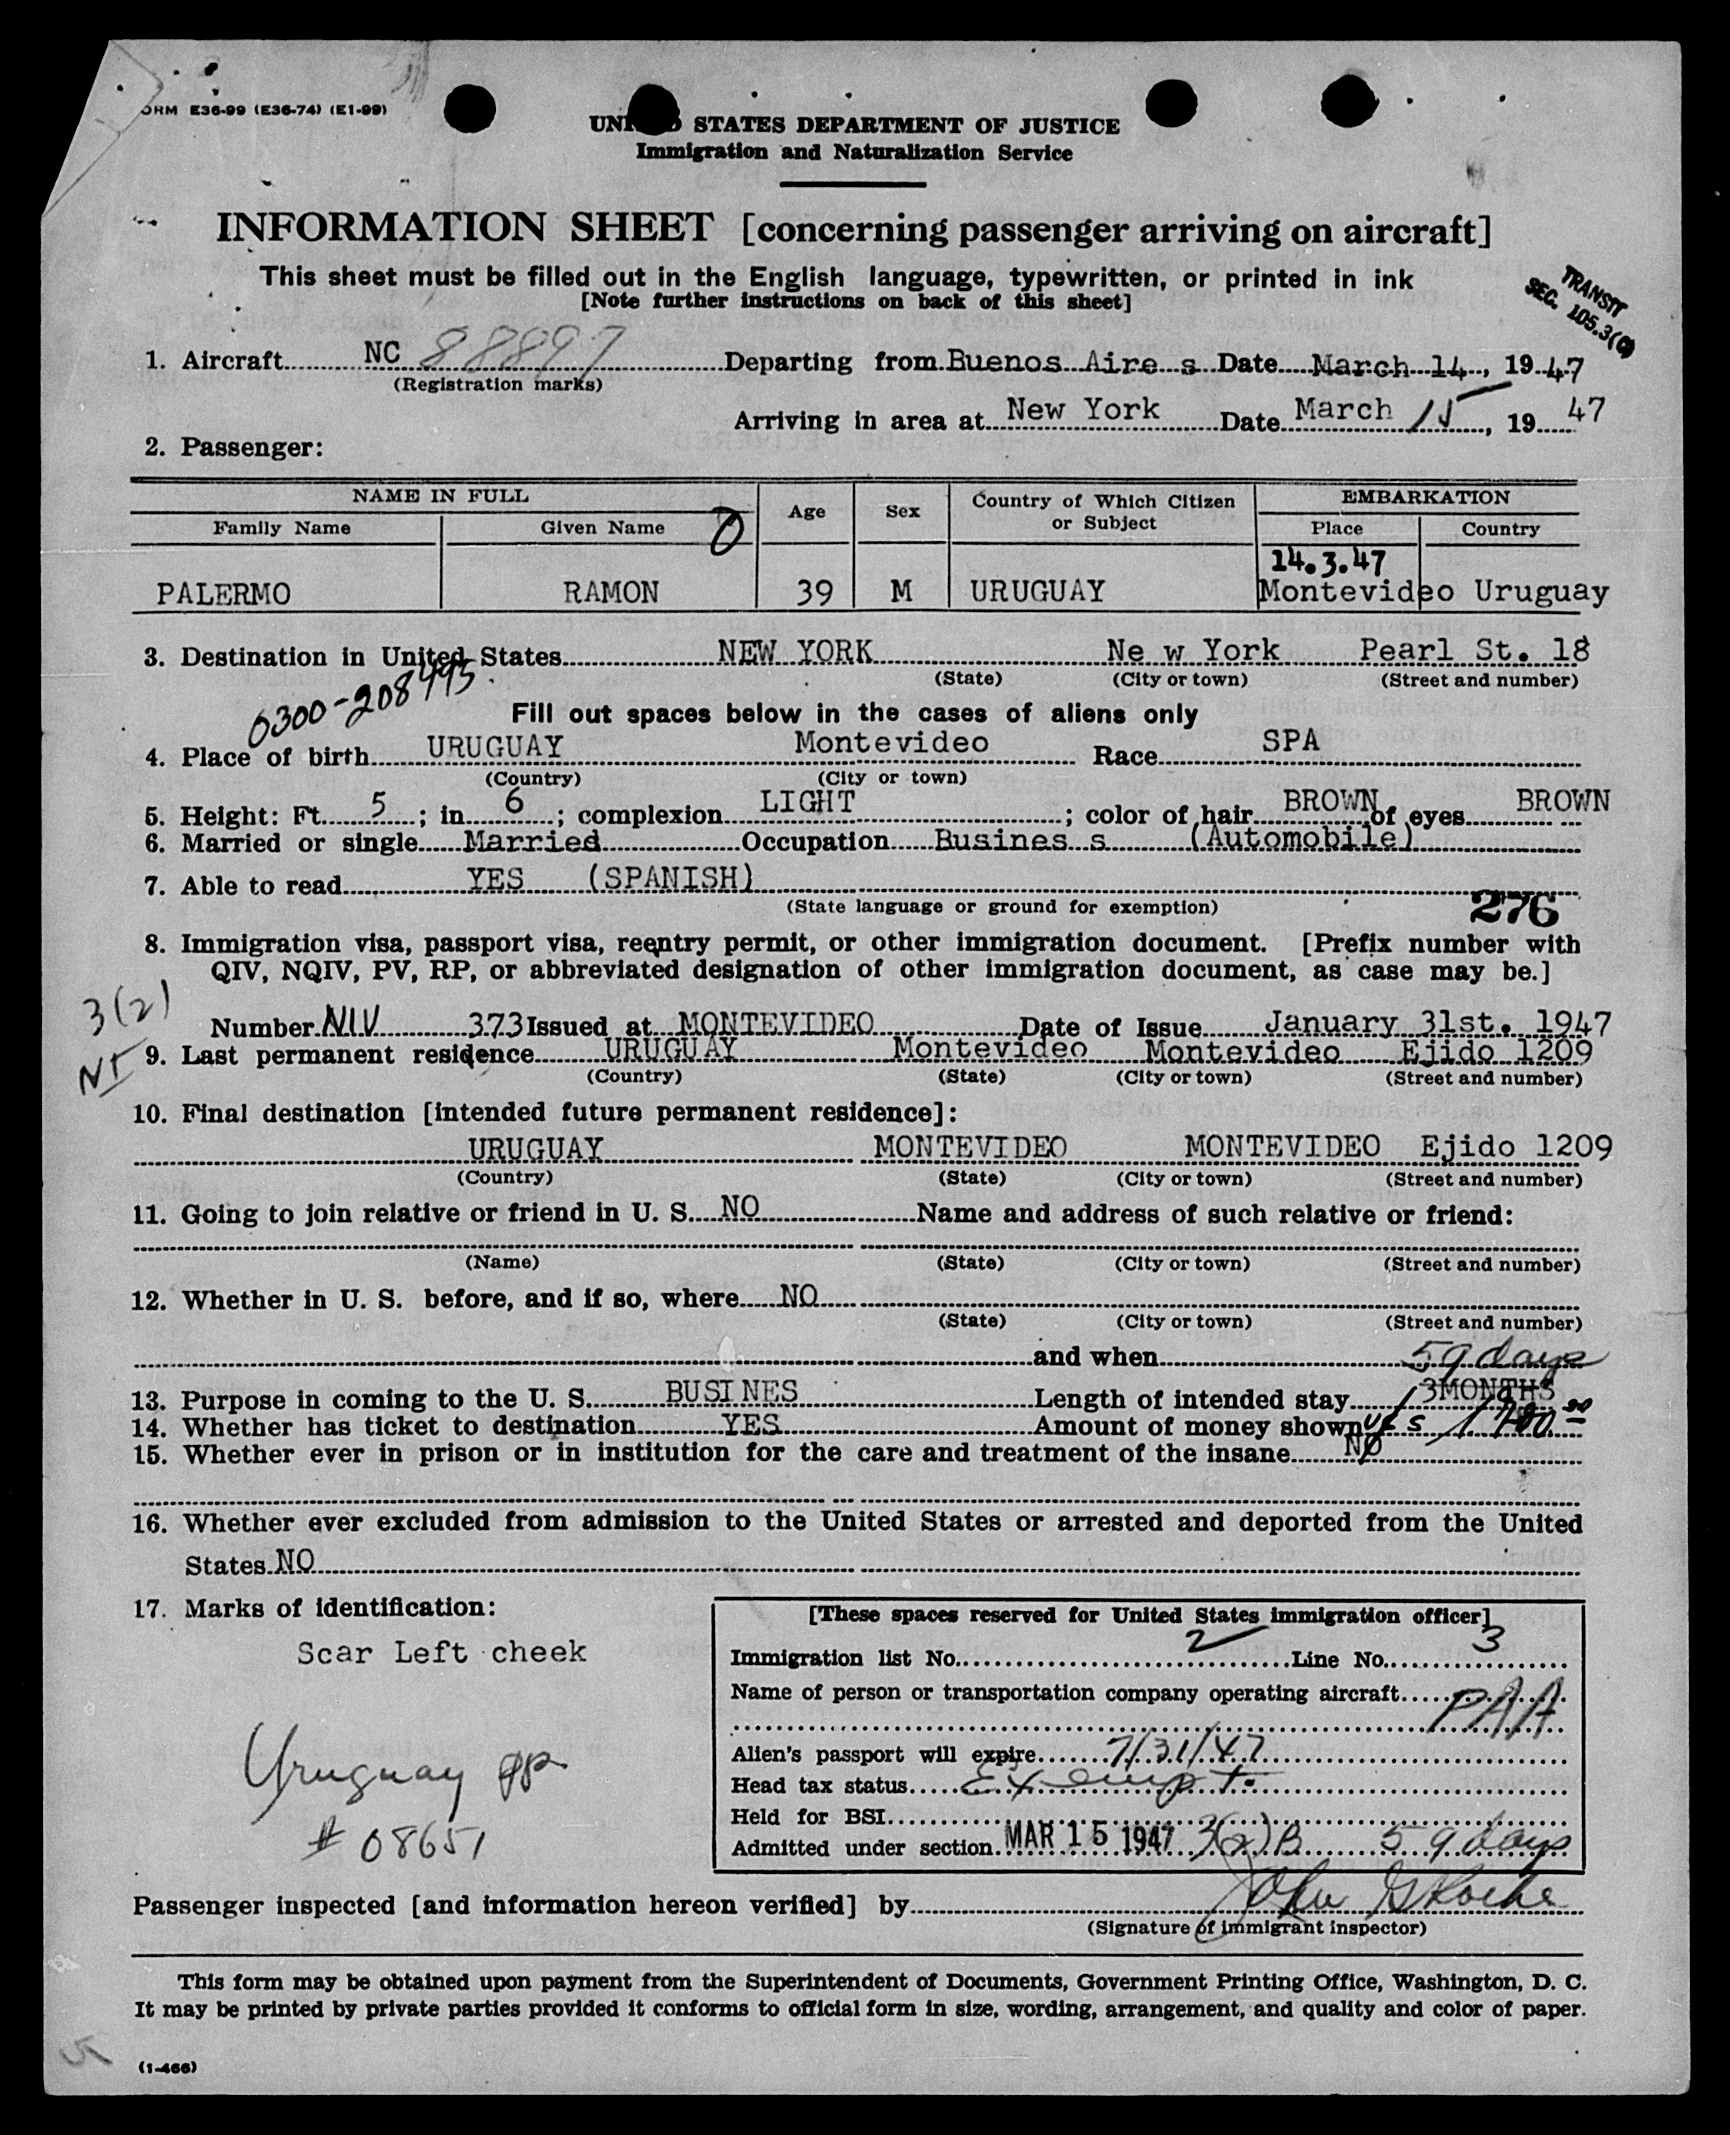 FORM E36-99 (E36-74) (E1-99)
UNITED STATES DEPARTMENT OF JUSTICE
Immigration and Naturalization Service
INFORMATION SHEET [concerning passenger arriving on aircraft]
This sheet must be filled out in the English language, typewritten, or printed in ink
[Note further instructions on back of this sheet]
TRANSIT
SEC. 105.3(c)
1. Aircraft NC 88897 Departing from Buenos Aire s Date March 14, 1947
(Registration marks)
Arriving in area at New York Date March 15, 1947
2. Passenger:
NAME IN FULL Age Sex Country of Which Citizen or Subject EMBARKATION
Family Name Given Name Place Country
0
14.3.47
PALERMO RAMON 39 M URUGUAY Montevideo Uruguay
3. Destination in United States NEW YORK Ne w York Pearl St. 18
(State) (City or town) (Street and number)
0300-208495
Fill out spaces below in the cases of aliens only
4. Place of birth URUGUAY Montevideo Race SPA
(Country) (City or town)
5. Height: Ft. 5; in. 6; complexion LIGHT; color of hair BROWN of eyes BROWN
6. Married or single Married Occupation Busines s (Automobile)
7. Able to read YES (SPANISH)
(State language or ground for exemption)
276
8. Immigration visa, passport visa, reentry permit, or other immigration document. [Prefix number with
QIV, NQIV, PV, RP, or abbreviated designation of other immigration document, as case may be.]
3(2)
NI
Number NIV 373 Issued at MONTEVIDEO Date of Issue January 31st. 1947
9. Last permanent residence URUGUAY Montevideo Montevideo Ejido 1209
(Country) (State) (City or town) (Street and number)
10. Final destination [intended future permanent residence]:
URUGUAY MONTEVIDEO MONTEVIDEO Ejido 1209
(Country) (State) (City or town) (Street and number)
11. Going to join relative or friend in U. S. NO Name and address of such relative or friend:
(Name) (State) (City or town) (Street and number)
12. Whether in U. S. before, and if so, where NO
(State) (City or town) (Street and number)
and when
59 days
13. Purpose in coming to the U. S. BUSINES Length of intended stay 3MONTHS
14. Whether has ticket to destination YES Amount of money shown yes
15. Whether ever in prison or in institution for the care and treatment of the insane NO
16. Whether ever excluded from admission to the United States or arrested and deported from the United
States NO
17. Marks of identification:
Scar Left cheek
Uruguay pp
# 08651
[These spaces reserved for United States immigration officer]
Immigration list No. 2 Line No. 3
Name of person or transportation company operating aircraft PAA
Alien's passport will expire 7/31/47
Head tax status Exempt.
Held for BSI
Admitted under section MAR 15 1947 3(2)B 59 days
Passenger inspected [and information hereon verified] by John G Roche
(Signature of immigrant inspector)
This form may be obtained upon payment from the Superintendent of Documents, Government Printing Office, Washington, D. C.
It may be printed by private parties provided it conforms to official form in size, wording, arrangement, and quality and color of paper.
(1-466)